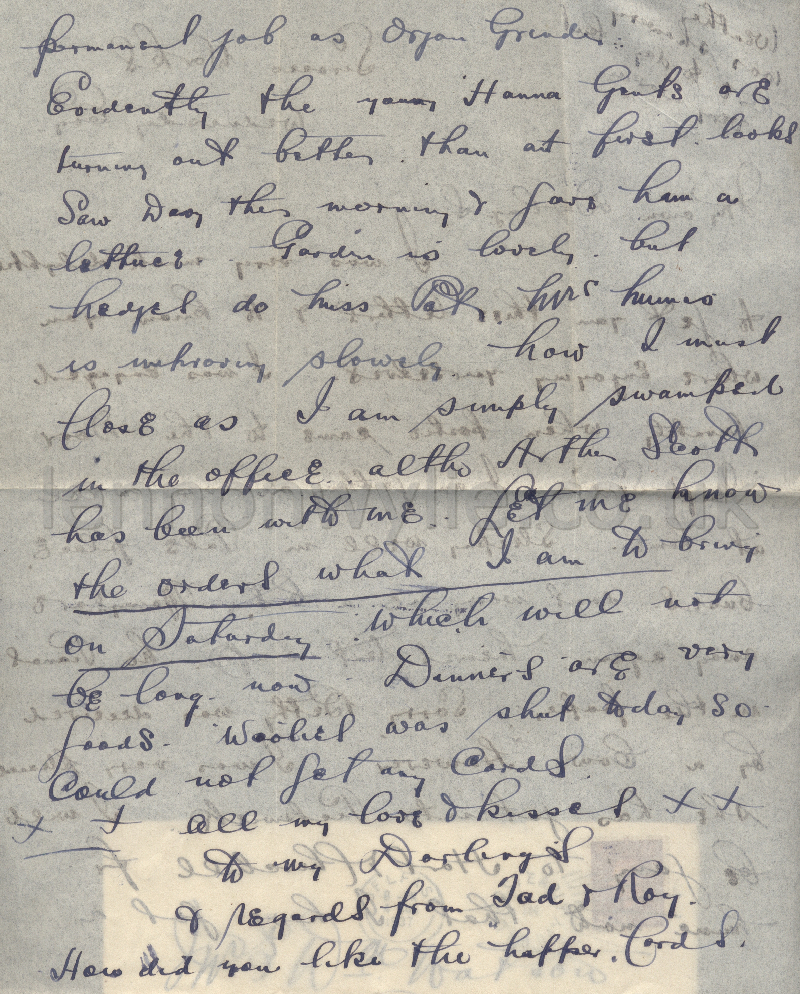 permanent job as Organ Grinder.
Evidently the young Hanna Gents are
turning out better than at first looks
Saw Davy this morning & gave him a
lettuce. Garden is lovely. but
hedges do miss Pat. Mrs
is improving slowly. now I must
Close as I am simply swamped
in the office. altho Arthur Scott
has been with me. Let me know
the orders what I am to bring
on Saturday. which will not
be long now. Dinners are very
good. Woolies was shut today so
Could not get any Cards.
x x all my love & kisses x x
to my Darlings
& regards from Dad & Roy.
How did you like the Cards.